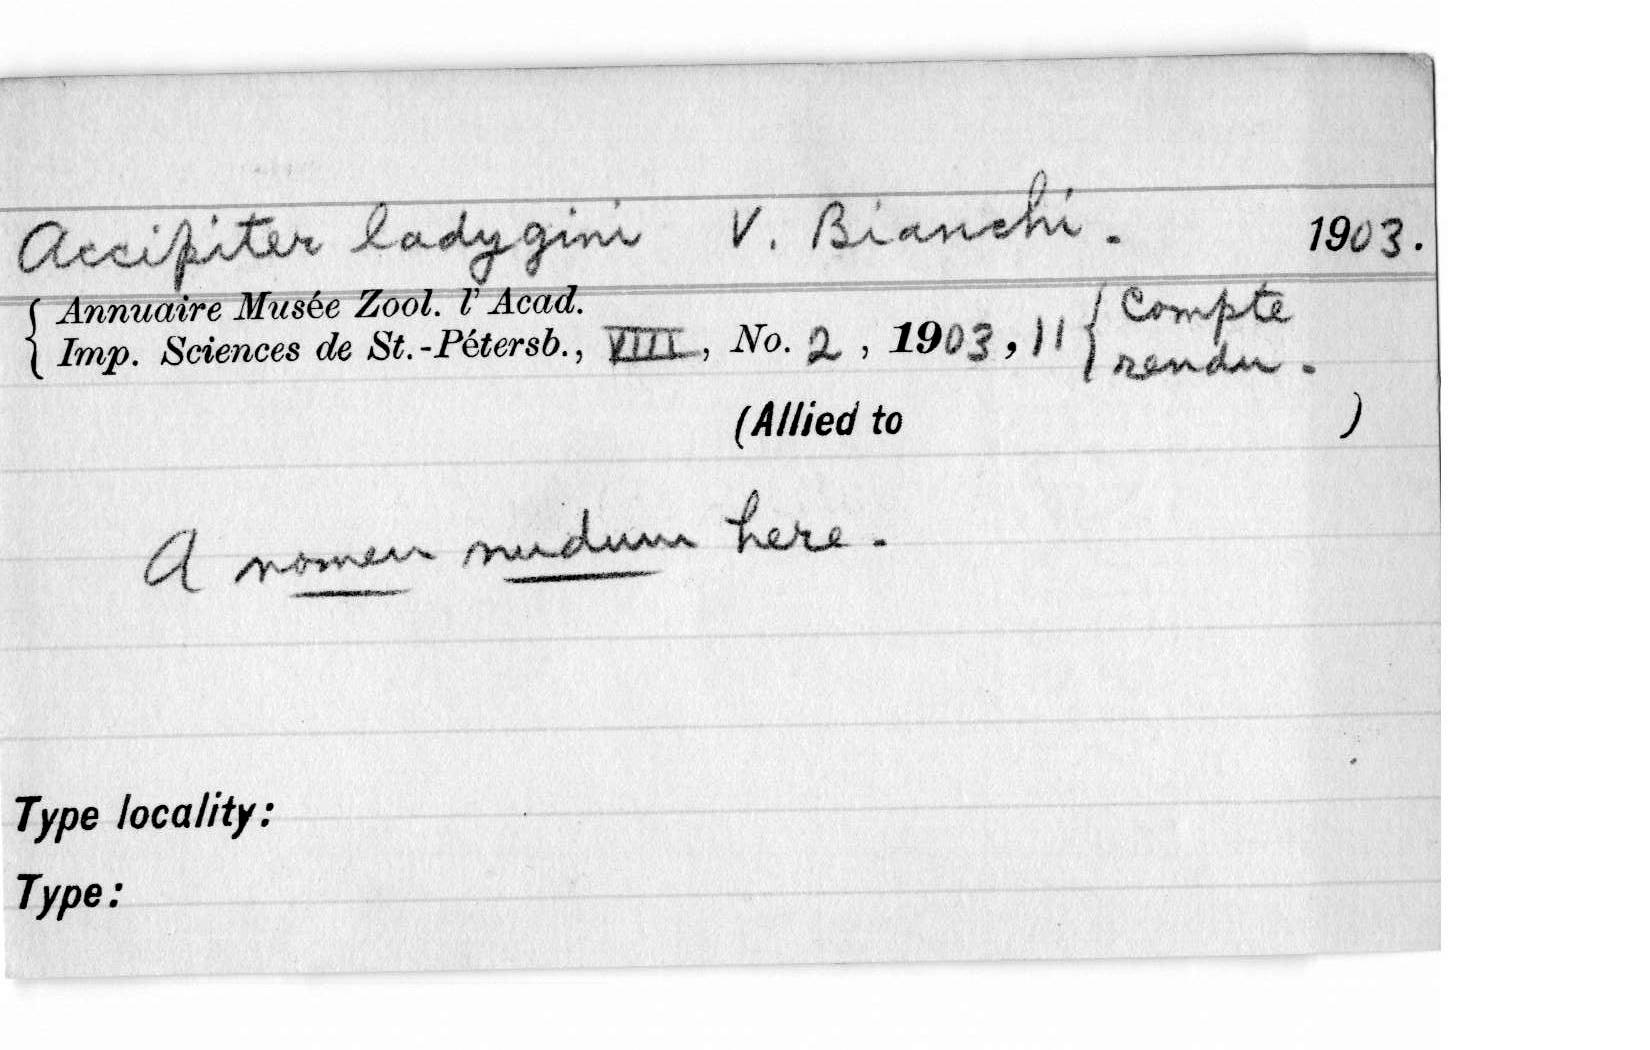 Accipiter ladygini V. Bianchi. 1903.
Annuaire Musée Zool. l' Acad.
Imp. Sciences de St.-Pétersb., VIII, No. 2, 1903, 11 { Compte rendu.
(Allied to )
A nomen nudum here.
Type locality:
Type: